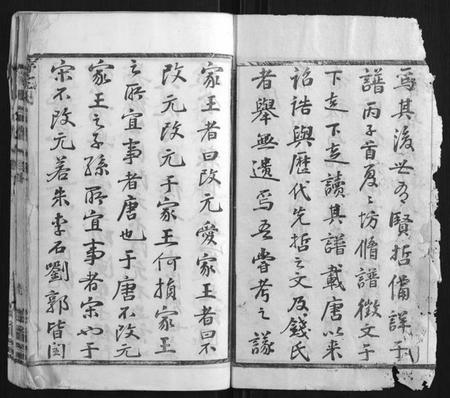 為其後世多賢哲備詳于
譜丙子首夏之坊修譜徵文于
下走下走讀其譜載唐以來
詔誥與歷代先哲之文及錢氏
者舉無遺焉吾嘗考之議
家王者曰改元愛家王者曰不
改元改元于家王何損家王
之所宜事者唐也于唐不改元
家王之子孫所宜事者宋也于
宋不改元若朱李石劉郭皆閏